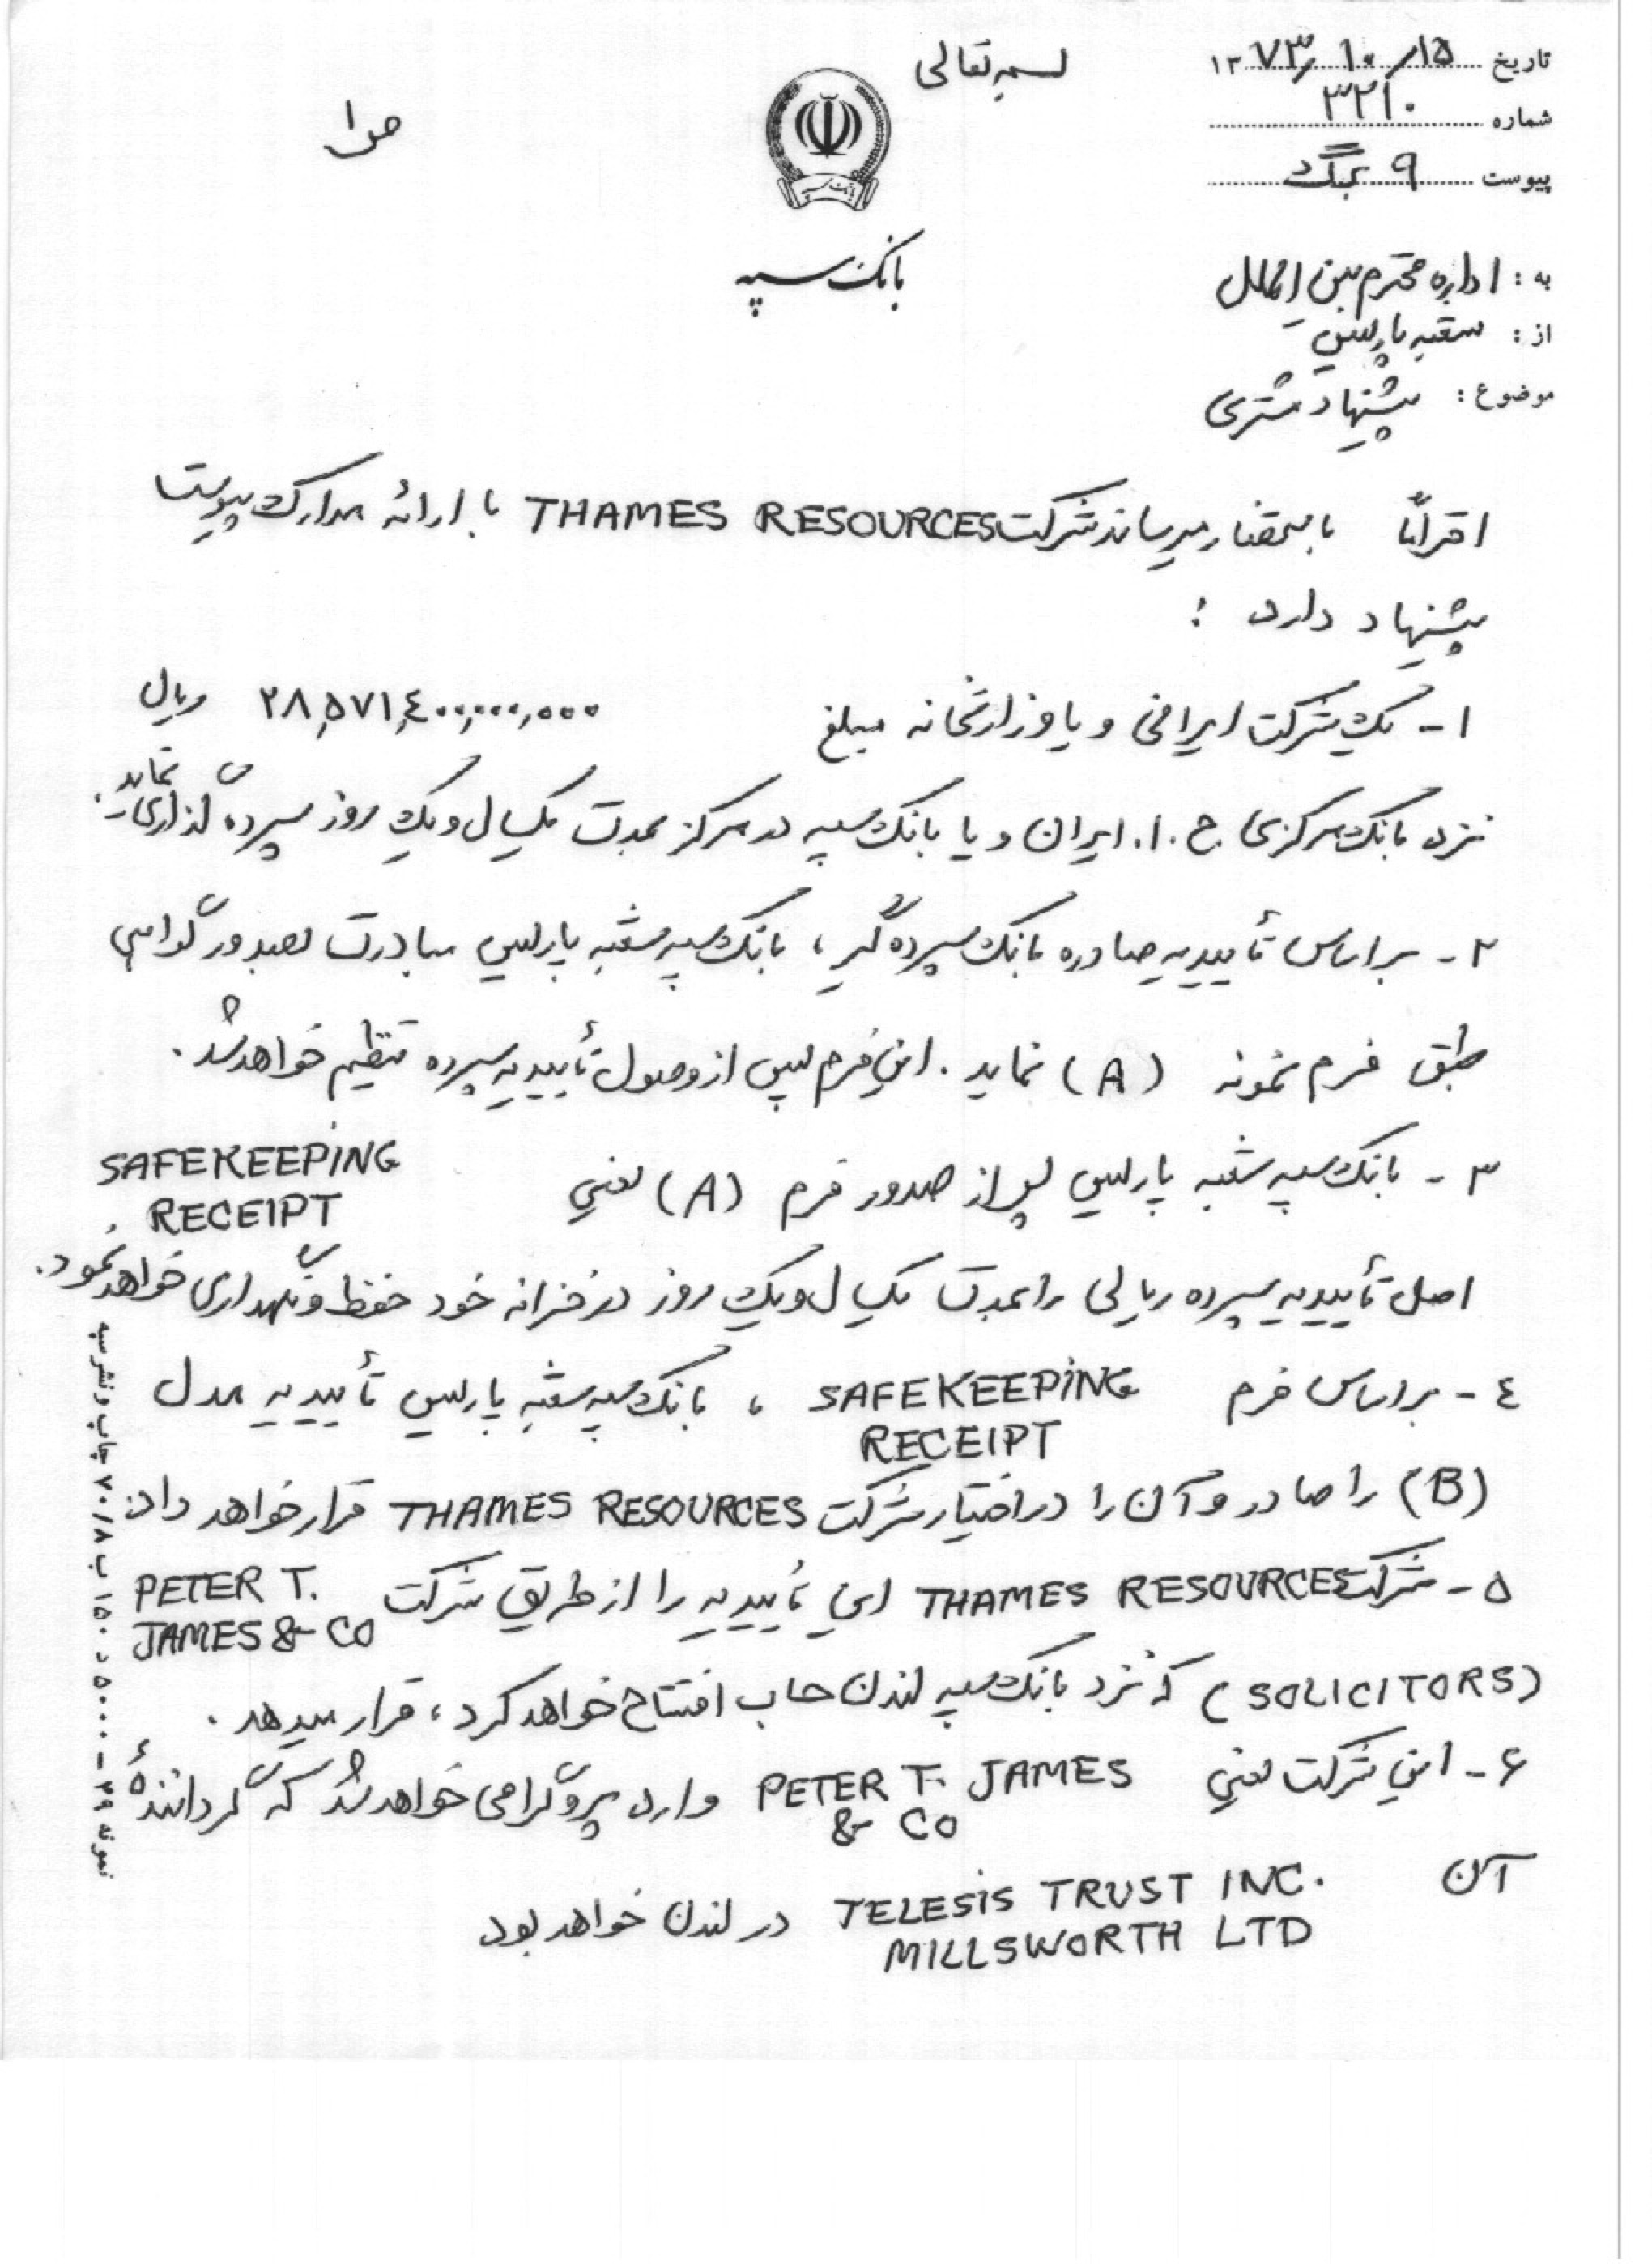 بسمه تعالی
تاریخ ۱۳۷۳/۱۰/۱۵
شماره ۳۲۱۰
پیوست ۹ برگ
ص ۱
بانک سپه
به : اداره محترم بین الملل
از : شعبه پاریس
موضوع : پیشنهاد مشتری
احتراماً باستحضار میرساند شرکت THAMES RESOURCES با ارائه مدارک پیوست
پیشنهاد دارد :
۱- یک شرکت ایرانی و یا وزارتخانه مبلغ ۲۸,۵۷۱,۴۰۰,۰۰۰,۰۰۰ ریال
نزد بانک مرکزی ج.ا.ایران و یا بانک سپه در مرکز بمدت یکسال و یک روز سپرده گذاری نماید.
۲- بر اساس تأییدیه صادره بانک سپرده گیر، بانک سپه شعبه پاریس مبادرت بصدور گواهی
طبق فرم نمونه (A) نماید. این فرم پس از وصول تأییدیه سپرده تنظیم خواهد شد.
۳- بانک سپه شعبه پاریس پس از صدور فرم (A) یعنی SAFEKEEPING
RECEIPT
اصل تأییدیه سپرده ریالی را بمدت یکسال و یک روز در خزانه خود حفظ و نگهداری خواهد نمود.
٤- بر اساس فرم SAFEKEEPING ، بانک سپه شعبه پاریس تأییدیه مدل
RECEIPT
(B) را صادر و آن را در اختیار شرکت THAMES RESOURCES قرار خواهد داد.
۵- شرکت THAMES RESOURCES این تأییدیه را از طریق شرکت PETER T.
JAMES & CO
(SOLICITORS) که نزد بانک سپه لندن حساب افتتاح خواهد کرد، قرار میدهد.
۶- این شرکت یعنی PETER T. JAMES وارد پروگرامی خواهد شد که گرداننده
& CO
آن TELESIS TRUST INC. در لندن خواهد بود
MILLSWORTH LTD
نمونه ۲۹ـ ۵۰۰۰۰ د ۱۵۰ ب ۷۰/۸ چاپ و نشر سپه